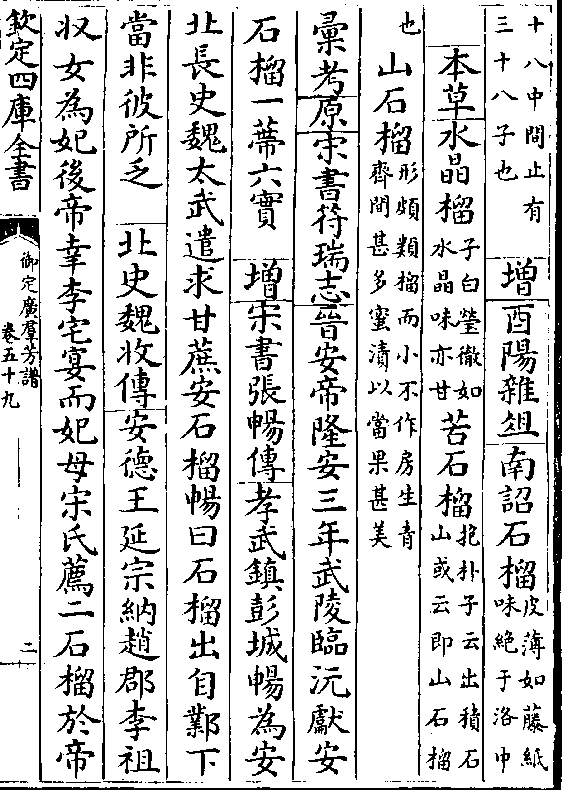 十八中間止有
三十八子也　增酉陽雜俎南詔石榴皮薄如藤紙
味絕于洛中
本草水晶榴子白瑩徹如
水晶味亦甘苦石榴抱朴子云出積石
山或云即山石榴
也山石榴形頗類榴而小不作房生青
齊間甚多蜜漬以當果甚美
彙考原宋書符瑞志晉安帝隆安三年武陵臨沅獻安
石榴一蔕六實　增宋書張暢傳孝武鎮彭城暢為安
北長史魏太武遣求甘蔗安石榴暢曰石榴出自鄴下
當非彼所乏　北史魏收傳安德王延宗納趙郡李祖
収女為妃後帝幸李宅宴而妃母宋氏薦二石榴於帝
欽定四庫全書
御定廣羣芳譜
卷五十九
二